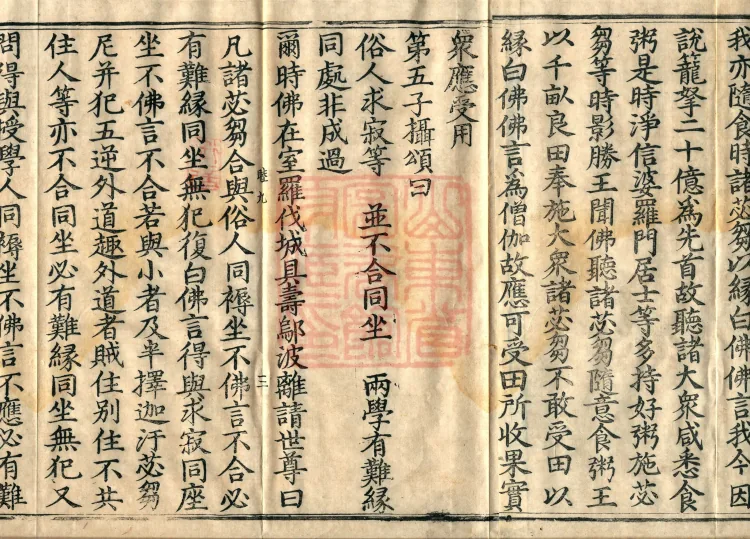 我亦隨食時諸苾芻以緣白佛佛言我今因
說籠拏二十億為先首故聽諸大衆咸悉食
粥是時淨信婆羅門居士等多持好粥施苾
芻等時影勝王聞佛聽諸苾芻隨意食粥王
以千畝良田奉施大衆諸苾芻不敢受田以
緣白佛佛言為僧伽故應可受田所收果實
衆應受用
第五子攝頌曰
俗人求寂等 並不合同坐 兩學有難緣
同處非成過
爾時佛在室羅伐城具壽鄔波離請世尊曰
睦九 三
凡諸苾芻合與俗人同褥坐不佛言不合必
有難緣同坐無犯復白佛言得與求寂同座
坐不佛言不合若與小者及半擇迦汙苾芻
尼并犯五逆外道趣外道者賊住別住不共
住人等亦不合同坐必有難緣同坐無犯又
問得與授學人同褥坐不佛言不應必有難